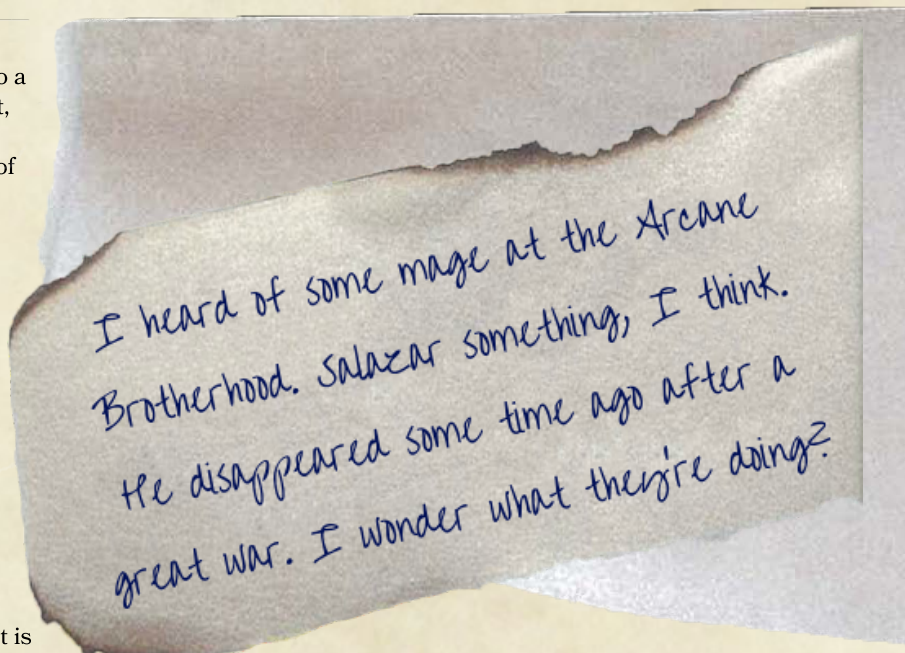 o a
t,
of
I heard of some mage at the Arcane
Brotherhood. Salazar something, I think.
He disappeared some time ago after a
great war. I wonder what they're doing?
t is